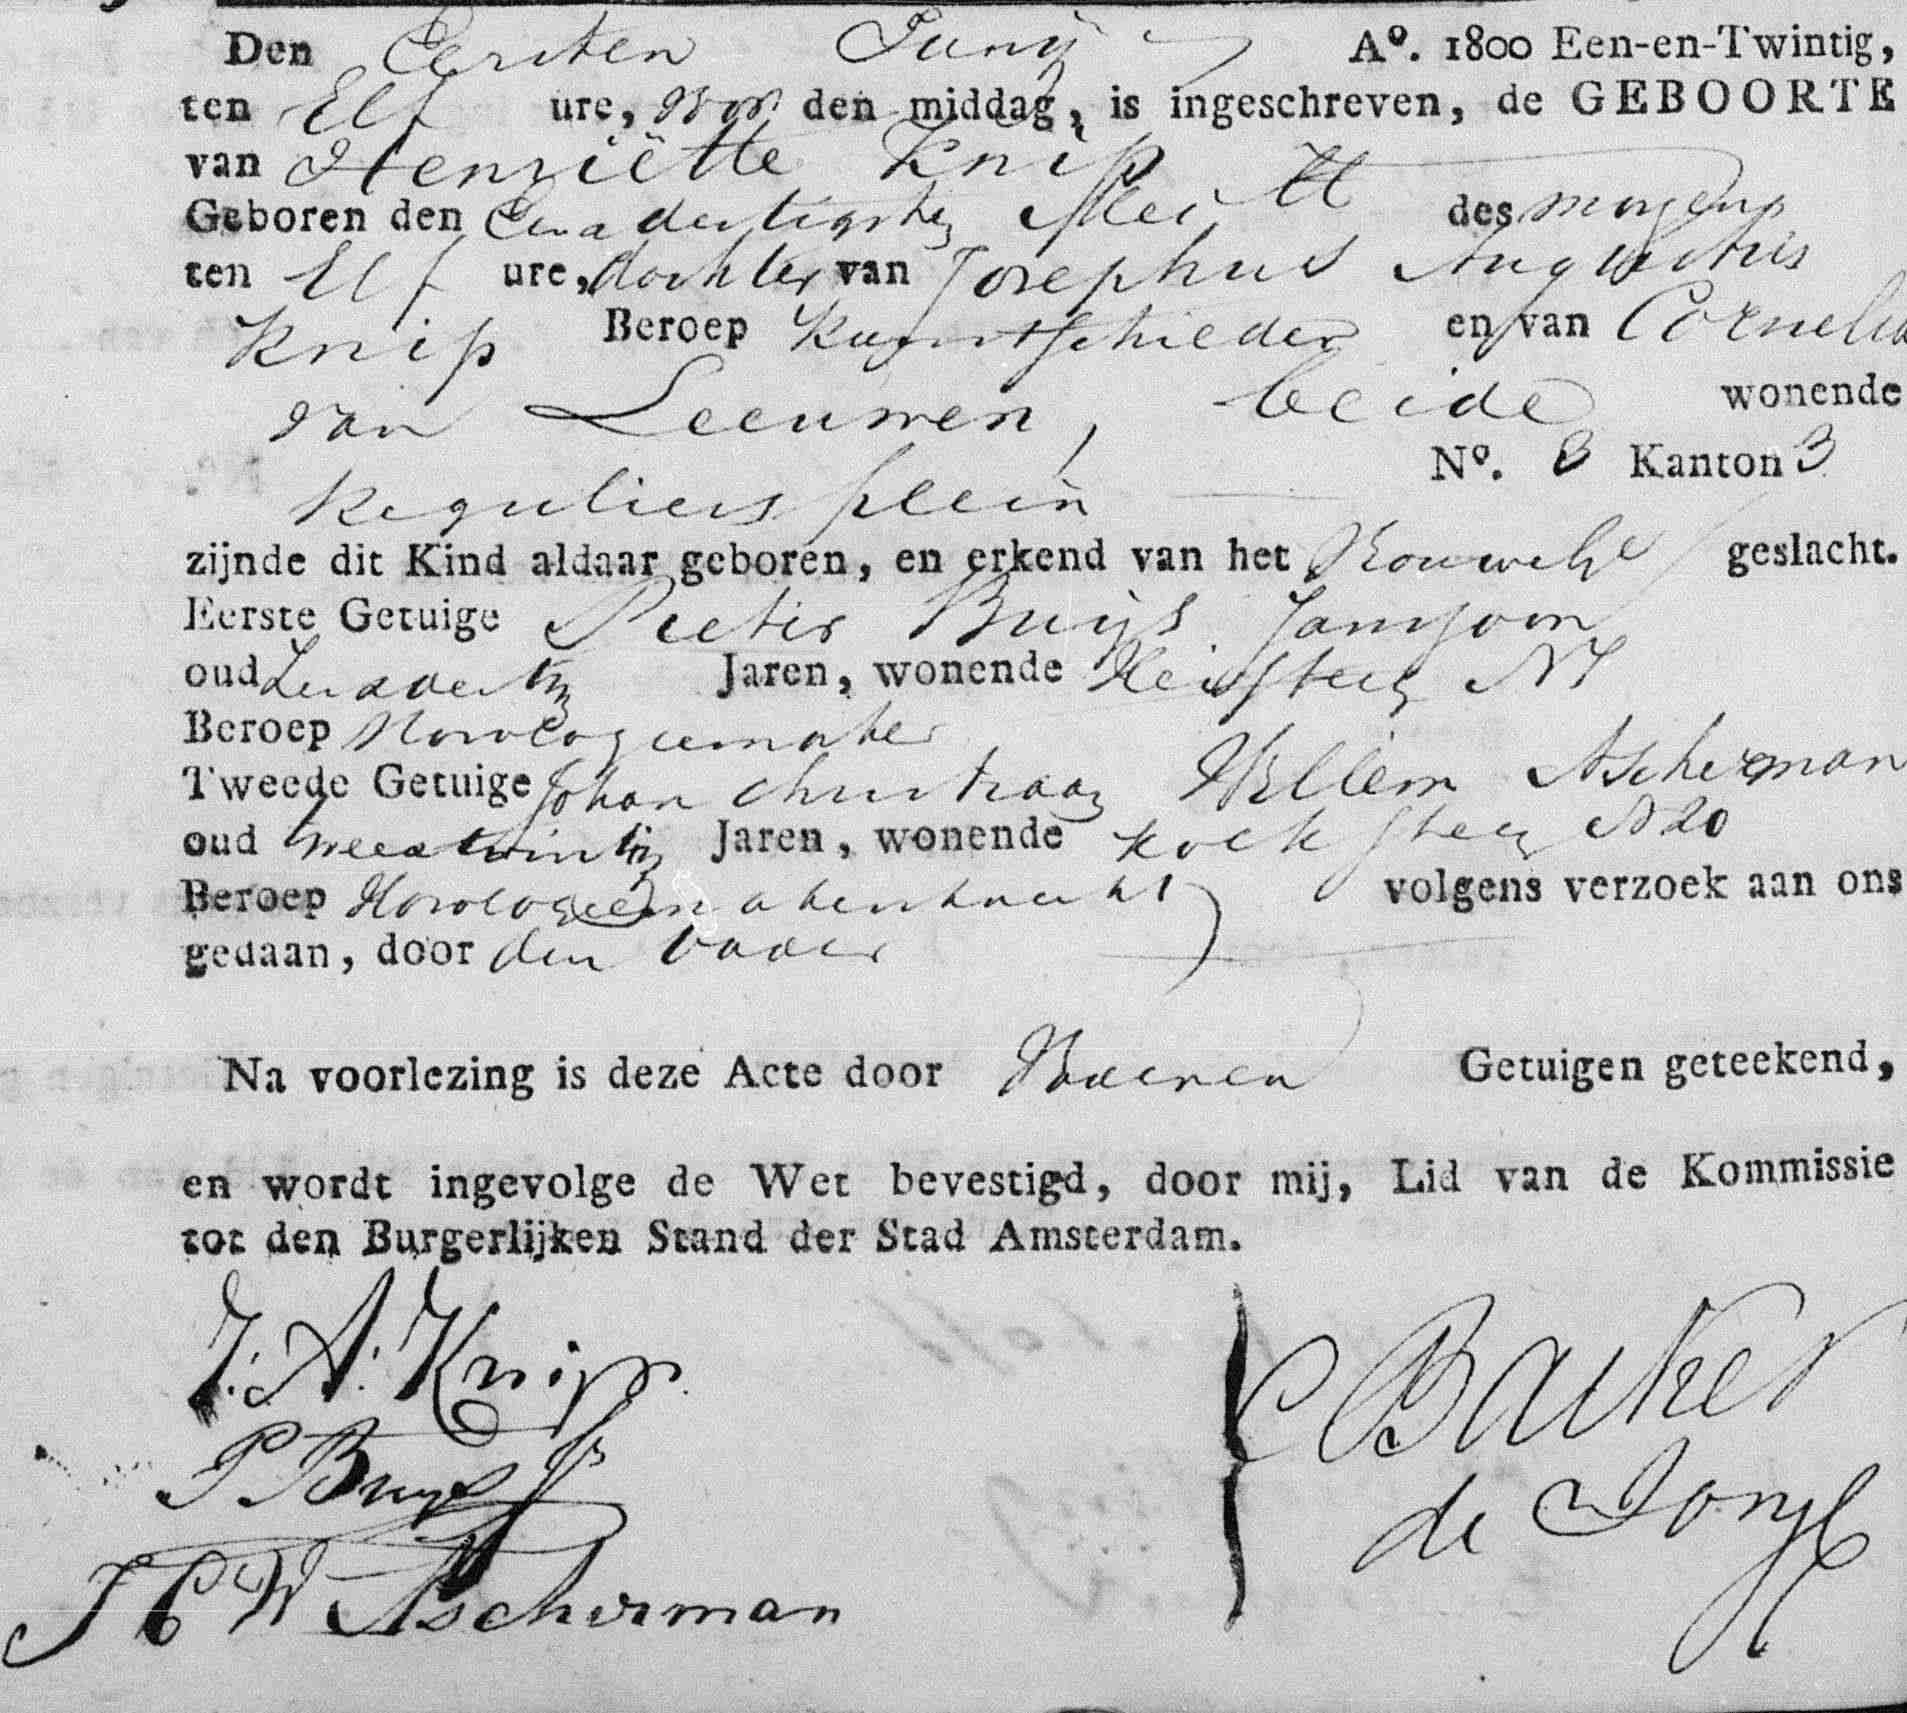 Den Eersten Junij A°. 1800 Een-en-Twintig,
ten Elf ure, voor den middag, is ingeschreven, de GEBOORTE
van Henriëtte Knip
Geboren den Eenadertigsten Mei ll des morgens
ten Elf ure, dochter van Josephus Augustus
Knip Beroep Kunstschilder en van Cornelia
van Leeuwen, beide wonende
Reguliersplein N°. 8 Kanton 3
zijnde dit Kind aldaar geboren, en erkend van het Vrouwelijke geslacht.
Eerste Getuige Pieter Buijs Janszoon
oud Jaren, wonende N 7
Beroep Horologiemaker
Tweede Getuige Johan Christiaan Willem Ascherman
oud tweeatwintig Jaren, wonende Koksteeg N 20
Beroep Horologiemakersknecht volgens verzoek aan ons
gedaan, door den vader
Na voorlezing is deze Acte door Vader en Getuigen geteekend,
en wordt ingevolge de Wet bevestigd, door mij, Lid van de Kommissie
tot den Burgerlijken Stand der Stad Amsterdam.
J: A: Knip.
P Buys Jz
J C W Ascherman
C Backer
de Jonge